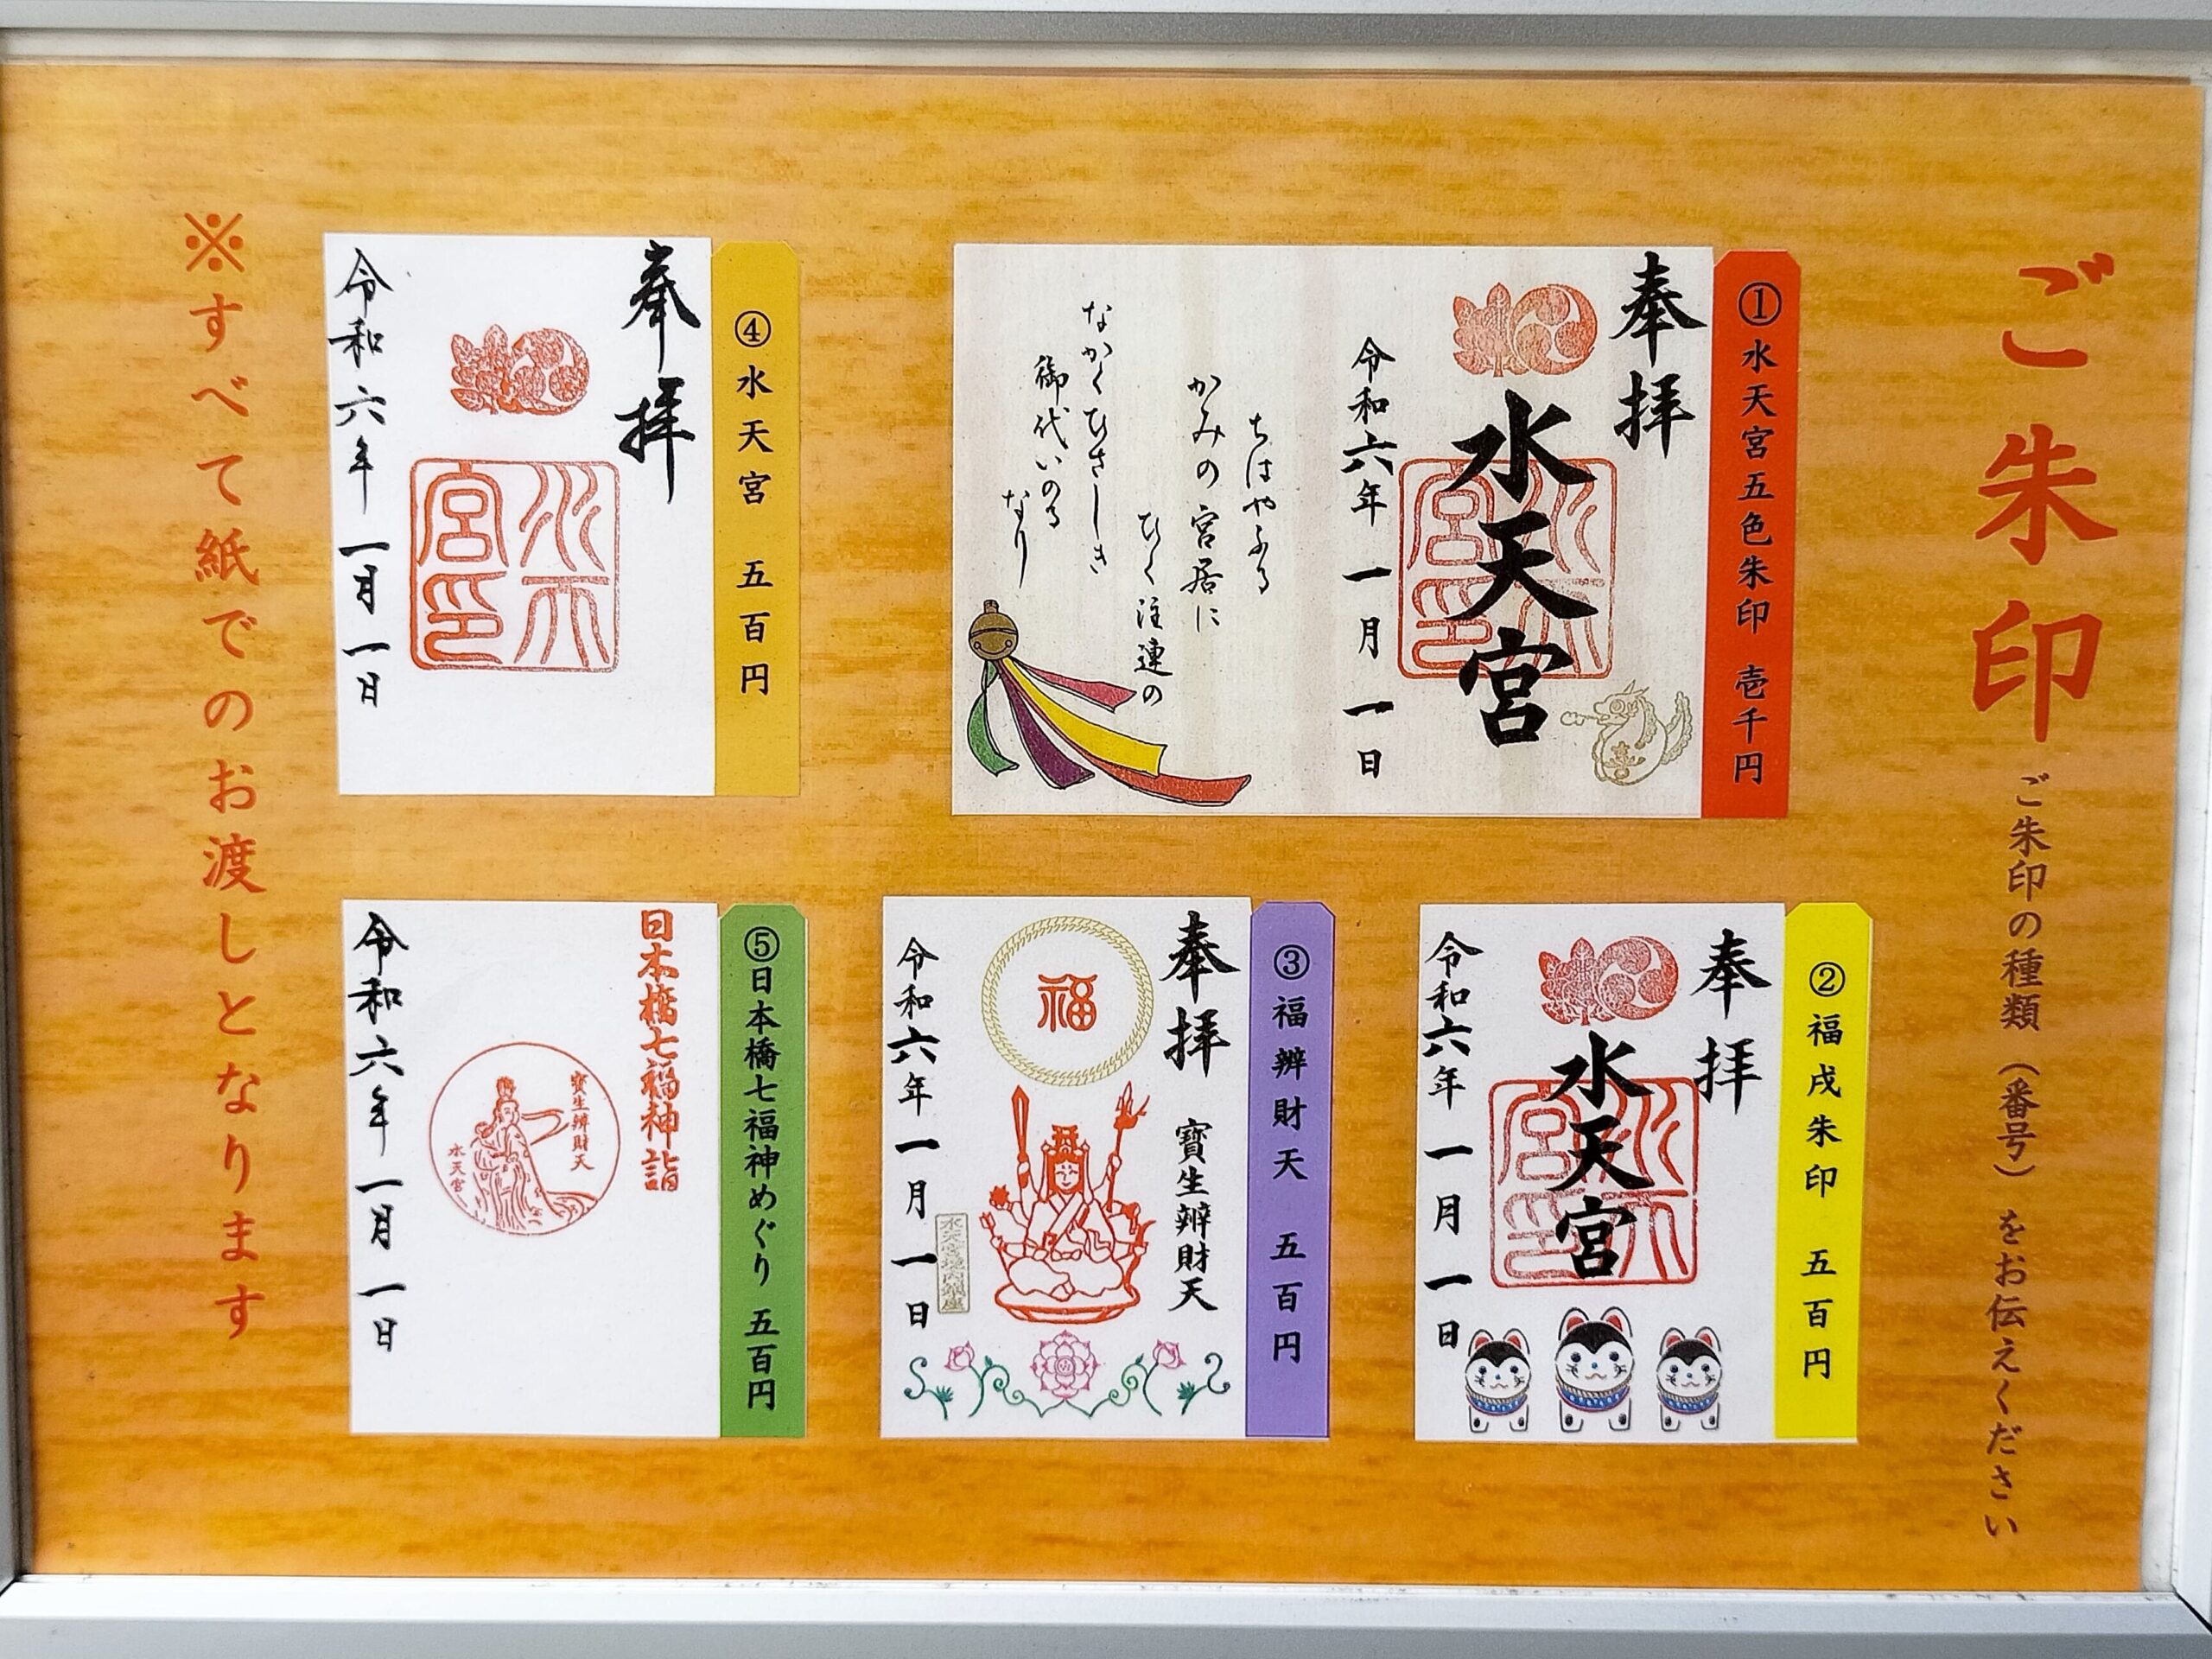 ご朱印
ご朱印の種類（番号）をお伝えください
①水天宮五色朱印 壱千円
奉拝
水天宮
令和六年一月一日
ちはやふる
かみの宮居に
ひく注連の
なかくひさしき
御代いのる
なり
④水天宮 五百円
奉拝
水天宮印
令和六年一月一日
②福戌朱印 五百円
奉拝
水天宮
令和六年一月一日
③福辨財天 五百円
奉拝
寶生辨財天
福
令和六年一月一日
水天宮境内鎮座
⑤日本橋七福神めぐり 五百円
日本橋七福神詣
寶生辨財天
水天宮
令和六年一月一日
※すべて紙でのお渡しとなります